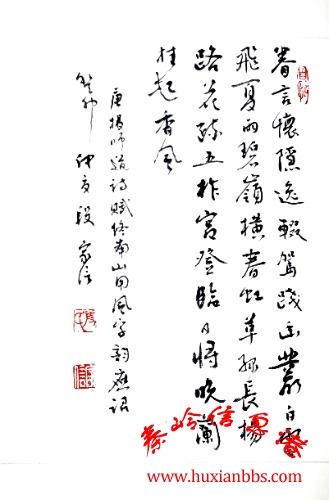 眷言懷隱逸輟駕踐幽叢白雲
飛夏雨碧嶺橫春虹草綠長楊
路花疏五柞宮登臨日將晚蘭
桂起香風
唐楊師道詩賦終南山用風字韻應詔
段家信
秦岭信
www.huxianbbs.com